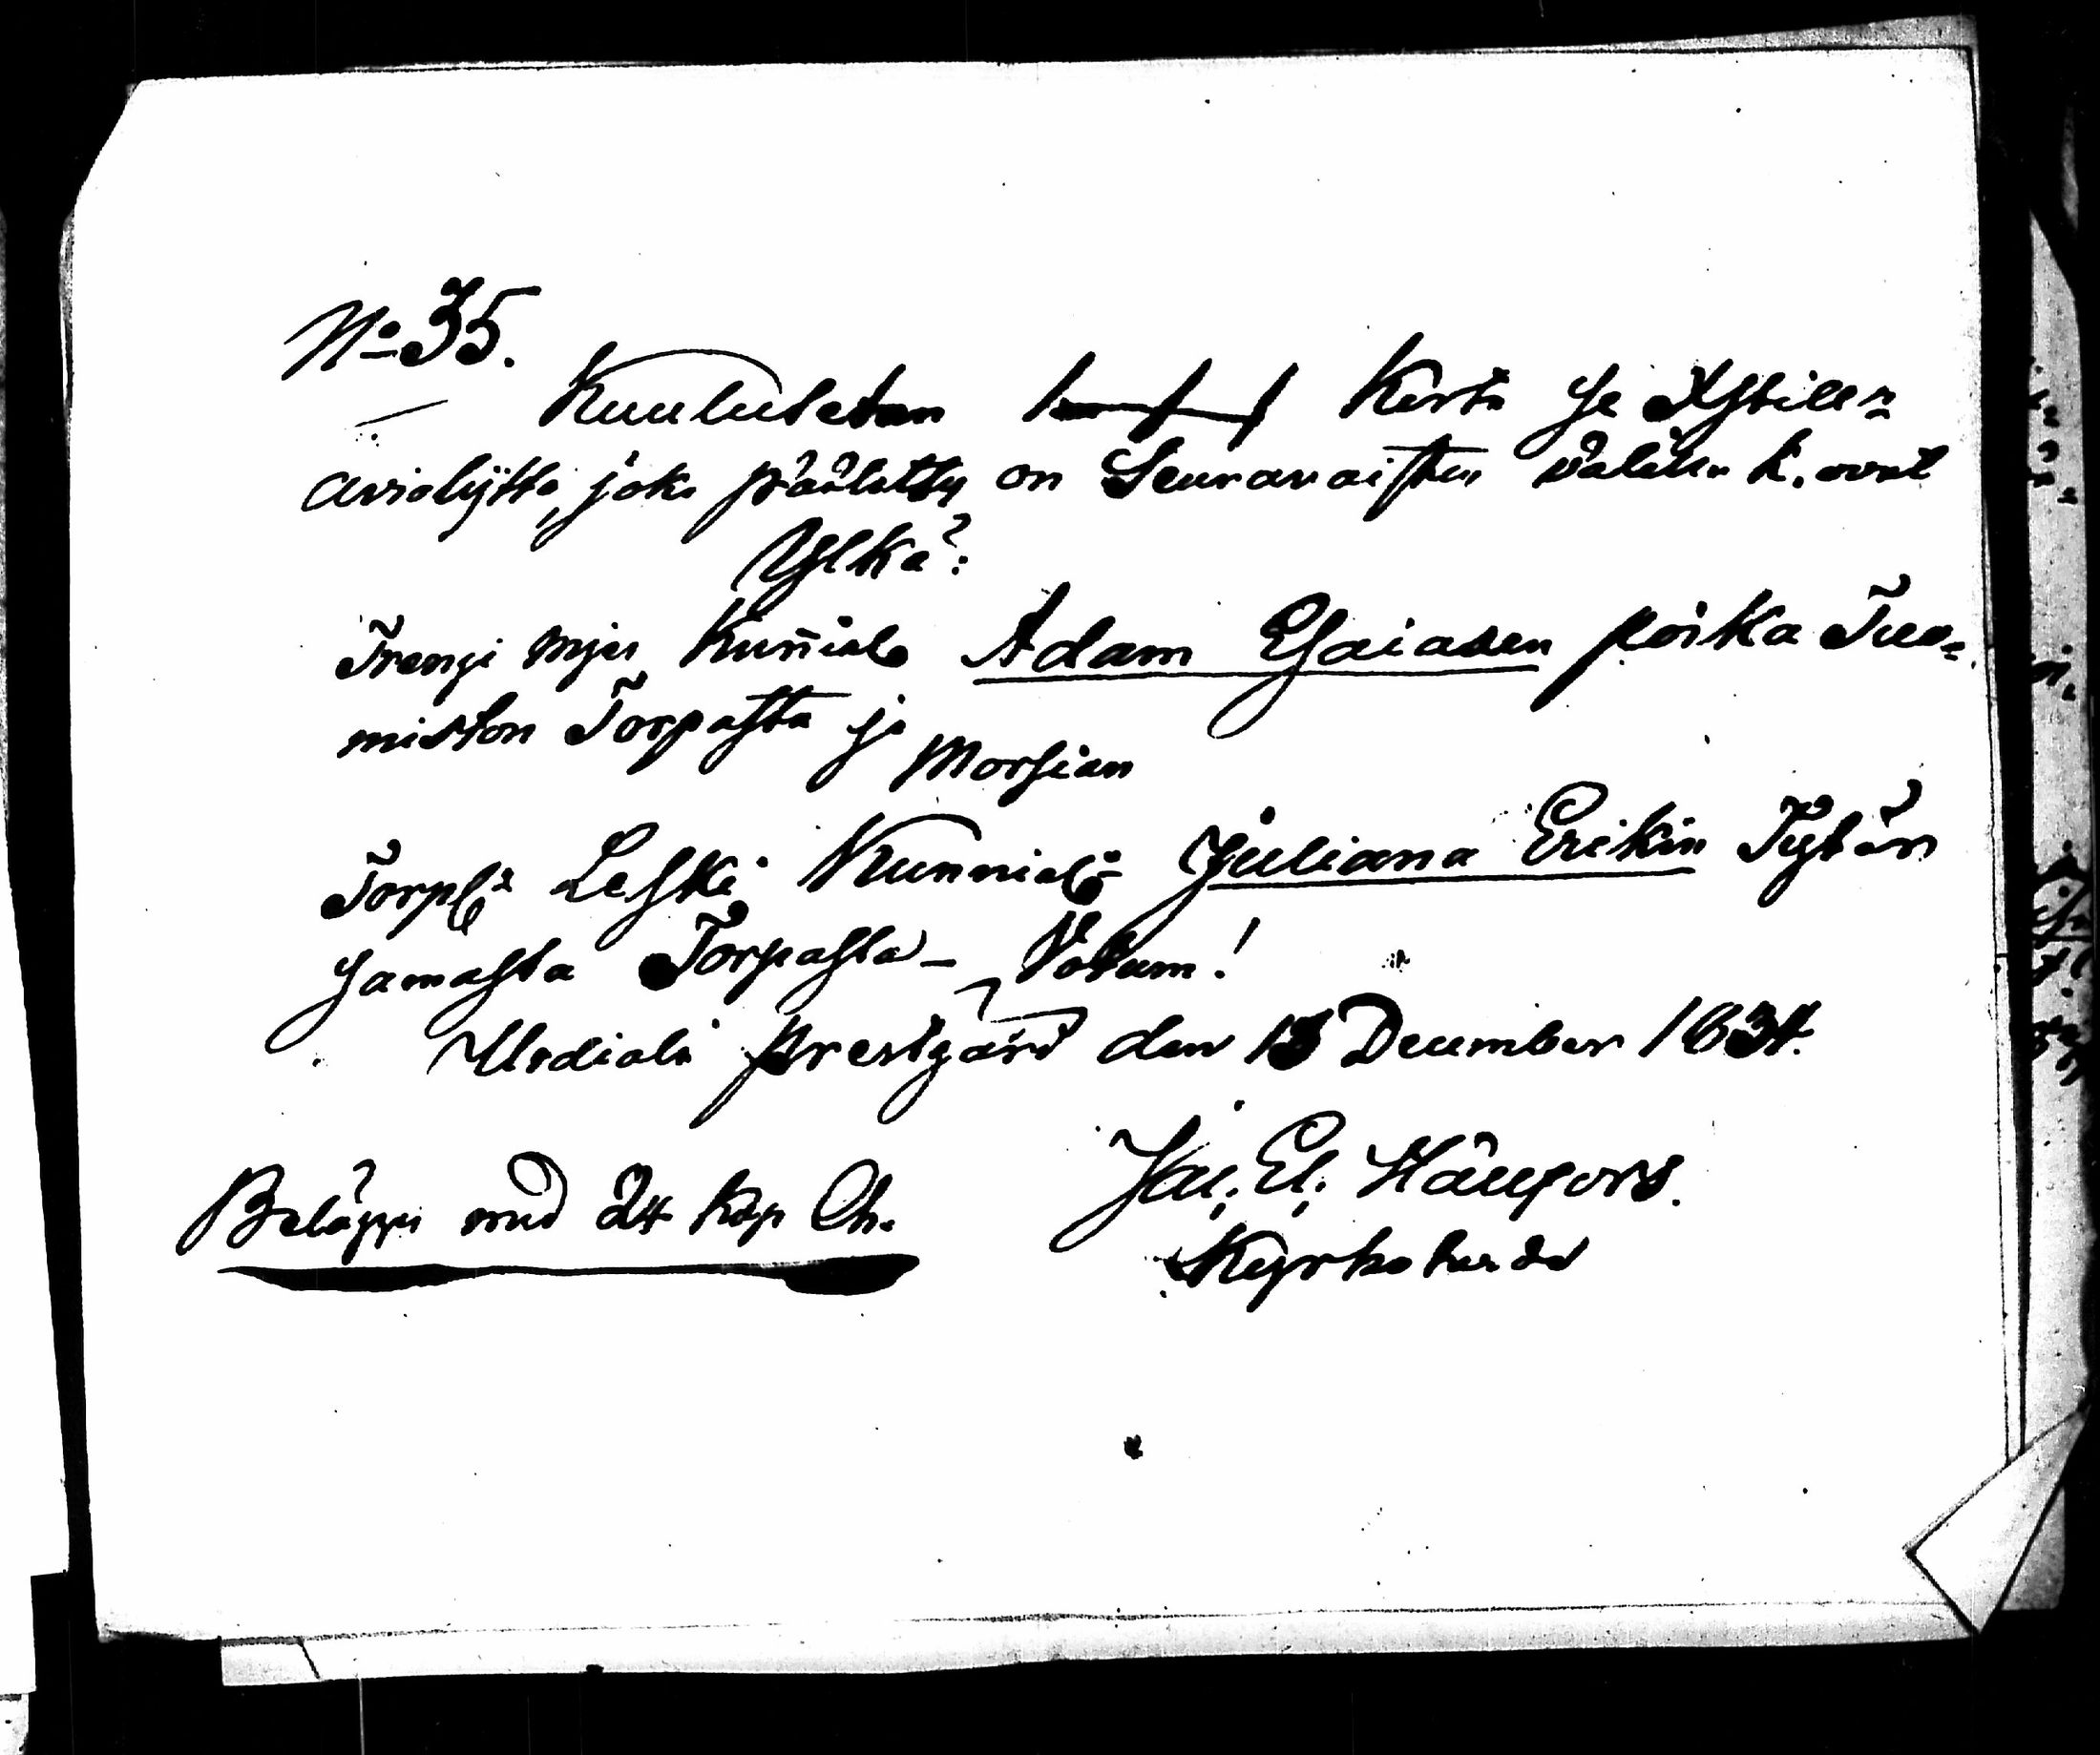 No 35.
Kuulutetan Kerta se Xstillen
aviolijtto, joka päätetty on Seuravaisten välillä k. ovat
Ylkä:
Trengi mjes Kunnial. Adam Esaiasen poika Tuo=
miston Torpasta ja Morsian
Torp. Leski Kunnial. Juliana Erikin Tytär
samasta Torpasta - Votum!
Urdiala prestgård den 13 December 1834.
Jac. El. Hällfors.
Beläggs med 24 kop Ch. Kyrkoherde